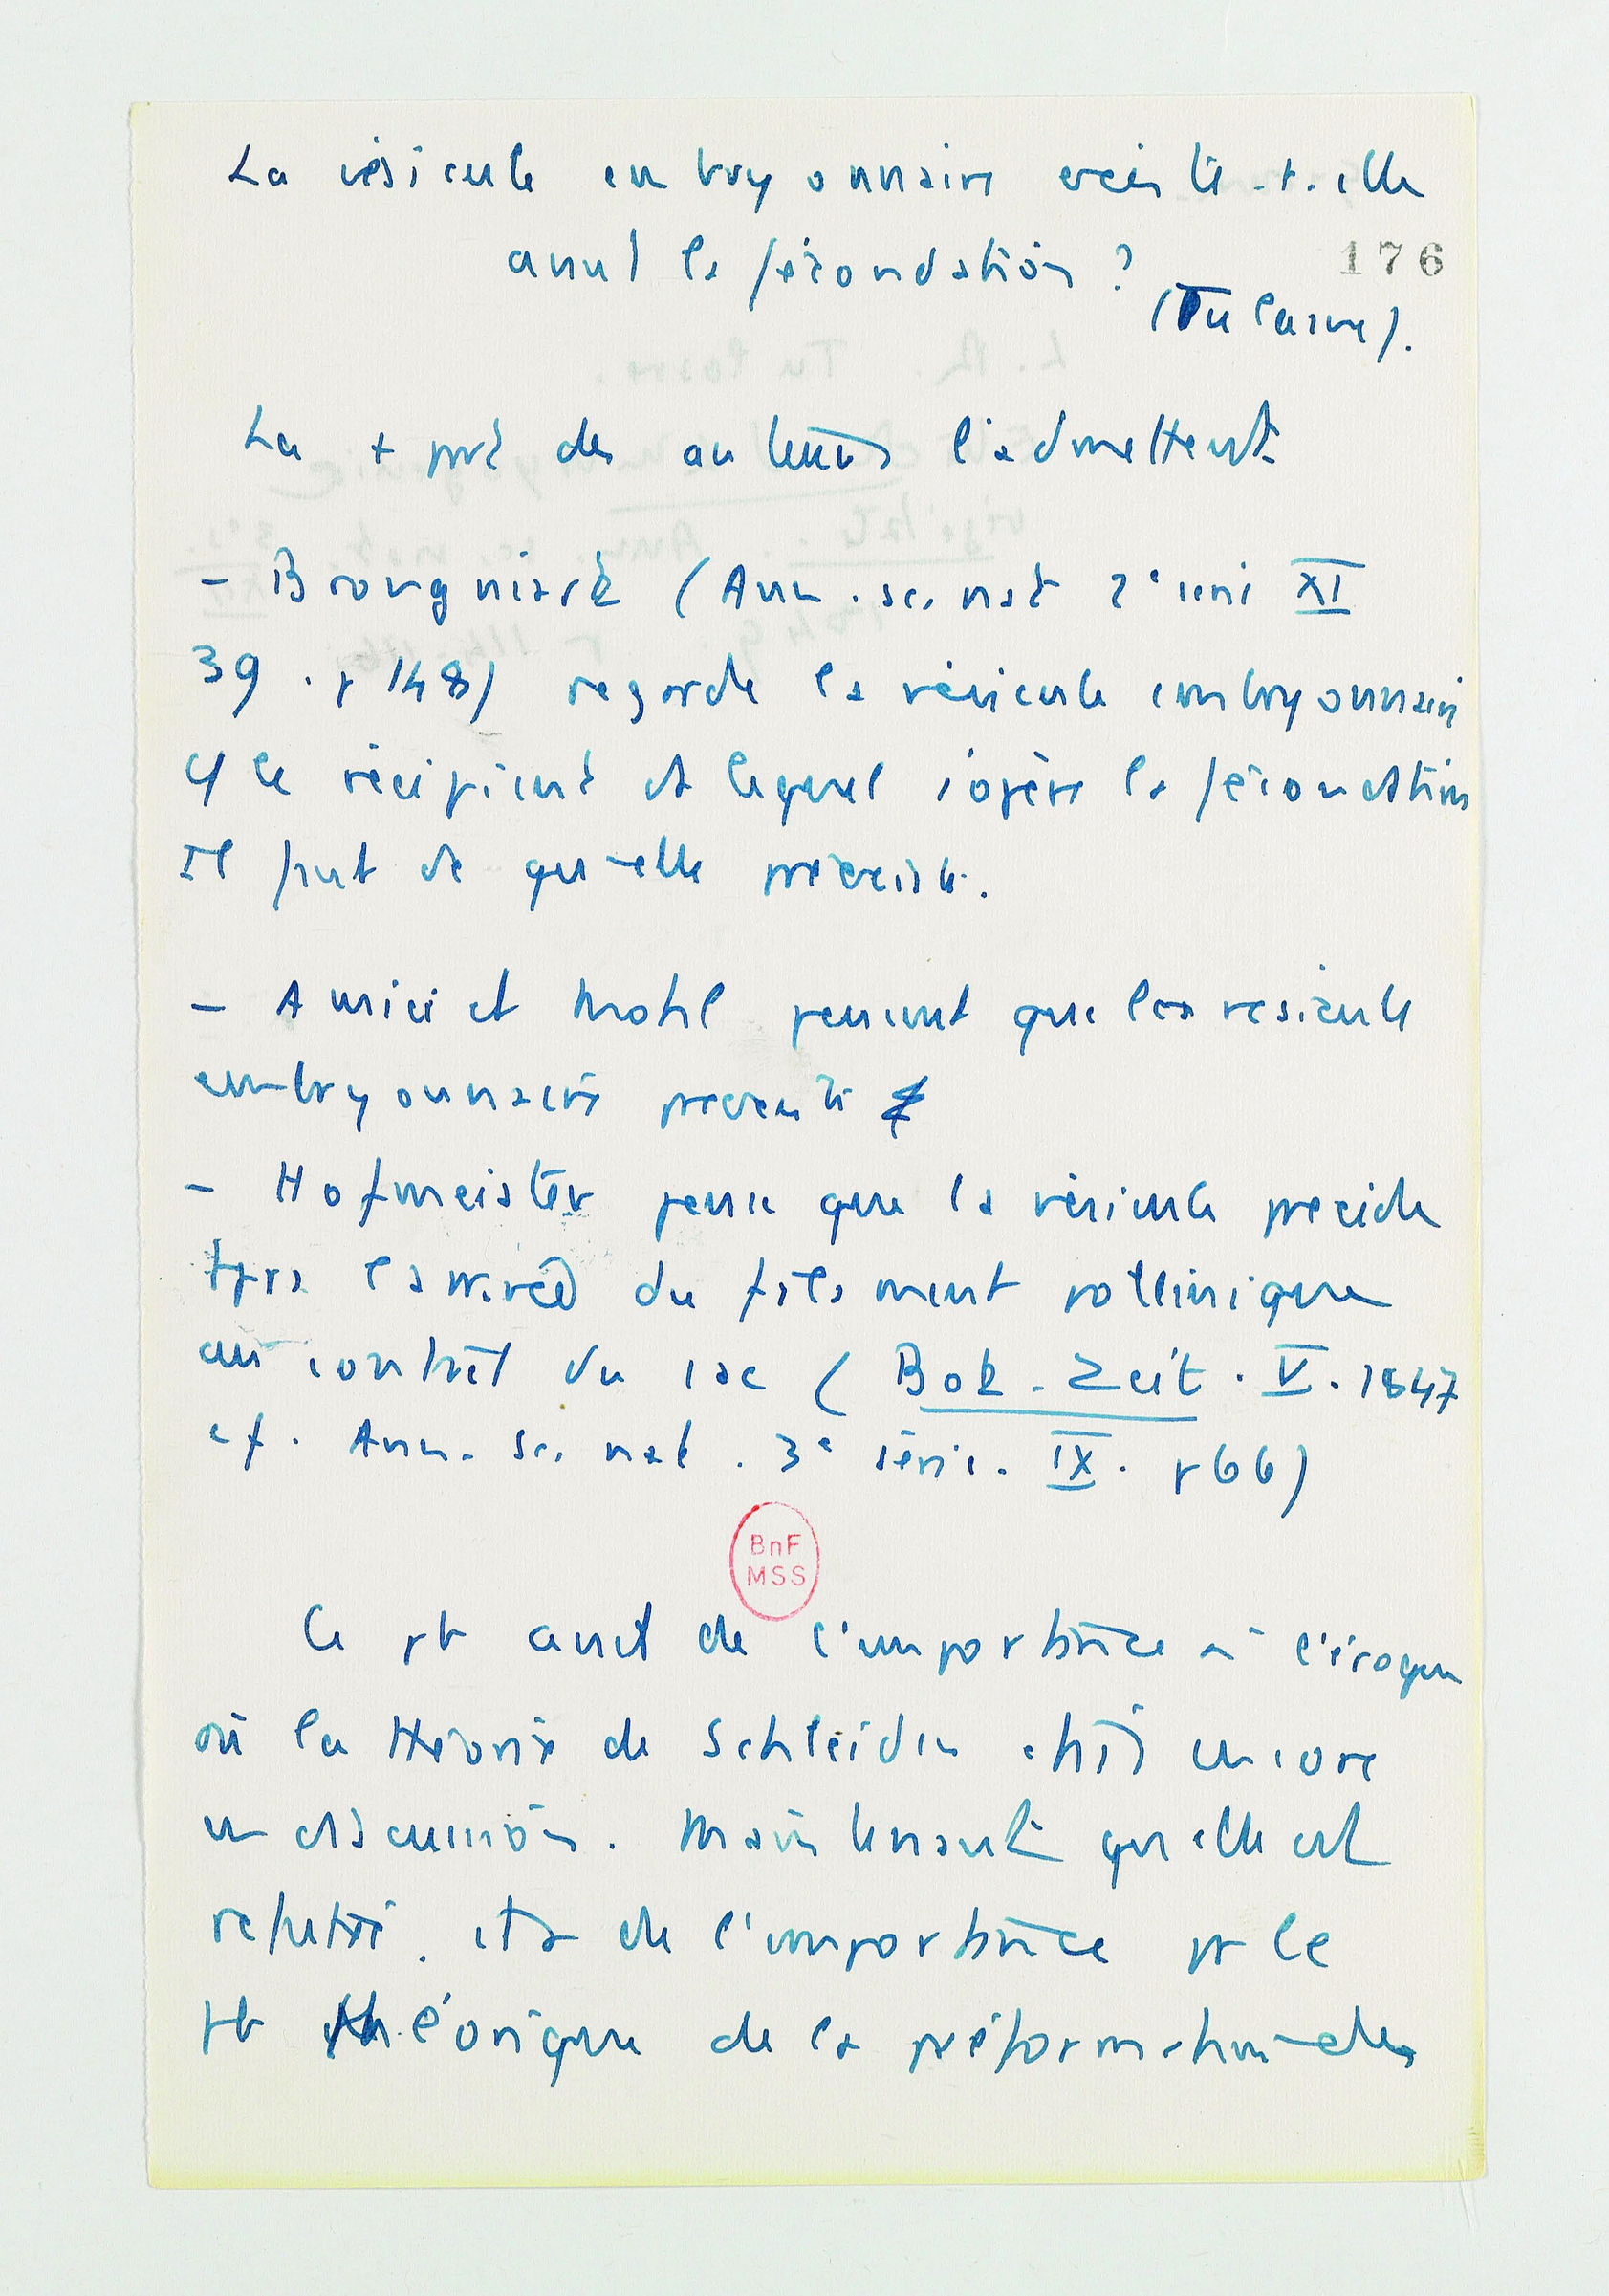 La vésicule embryonnaire existe-t-elle
avant la fécondation ?
176
(Tulasne).
La + part des auteurs l'admettent
- Brongniart (Ann. sc. nat 2e série XI
39. p 148) regarde la vésicule embryonnaire
le récipient ds lequel s'opère la fécondation
Il faut dc qu'elle préexiste.
- Amici et Mohl pensent que la vésicule
embryonnaire préexiste
- Hofmeister pense que la vésicule précède
tjrs l'arrivée du filament pollinique
au contact du sac (Bot. Zeit. V. 1847
cf. Ann. Sc. nat. 3e série. IX. p 66)
BnF
MSS
Ce pb avait de l'importance à l'époque
où la théorie de Schleiden était encore
en discussion. Maintenant qu'elle est
réfutée, de l'importance pr le
pb théorique de la préformation des